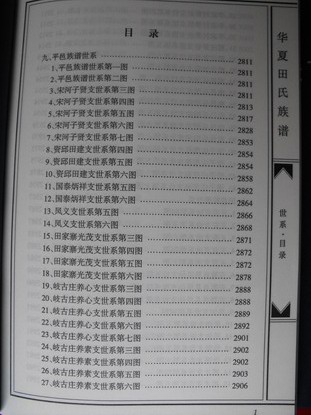 目录
九、平邑族谱世系 2811
1、平邑族谱世系第一图 2811
2、平邑族谱世系第二图 2811
3、宋河子贤支世系第三图 2811
4、宋河子贤支世系第四图 2813
5、宋河子贤支世系第五图 2817
6、宋河子贤支世系第六图 2828
7、宋河子贤支世系第七图 2853
8、资邱田建支世系第四图 2854
9、资邱田建支世系第五图 2854
10、资邱田建支世系第六图 2858
11、国泰炳祥支世系第五图 2862
12、国泰炳祥支世系第六图 2864
13、凤义支世系第五图 2866
14、凤义支世系第六图 2868
15、田家寨光茂支世系第三图 2871
16、田家寨光茂支世系第四图 2872
17、田家寨光茂支世系第五图 2872
18、田家寨光茂支世系第六图 2878
19、岐古庄养心支世系第三图 2888
20、岐古庄养心支世系第四图 2888
21、岐古庄养心支世系第五图 2889
22、岐古庄养心支世系第六图 2892
23、岐古庄养心支世系第七图 2901
24、岐古庄养素支世系第三图 2902
25、岐古庄养素支世系第四图 2902
26、岐古庄养素支世系第五图 2903
27、岐古庄养素支世系第六图 2906
华夏田氏族谱
世系·目录
1